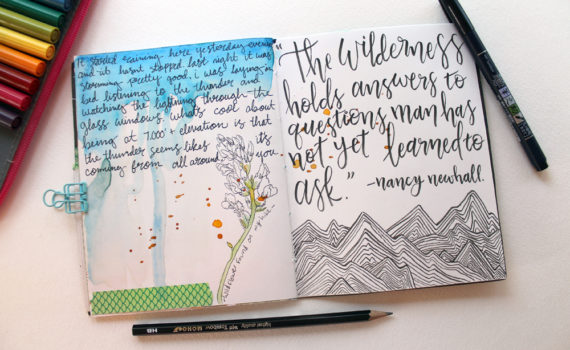 It started raining here yesterday evening
and it hasnt stopped. last night it was
storming pretty good. i was laying in
bed listening to the thunder and
watching the lightning through the
glass windows. whats cool about
being at 7,000 ft elevation is that
the thunder seems likes it's
coming from all around you.
"The Wilderness
holds answers to
questions man has
not yet learned to
ask."
-nancy newhall.
HB
MONO
Tombow